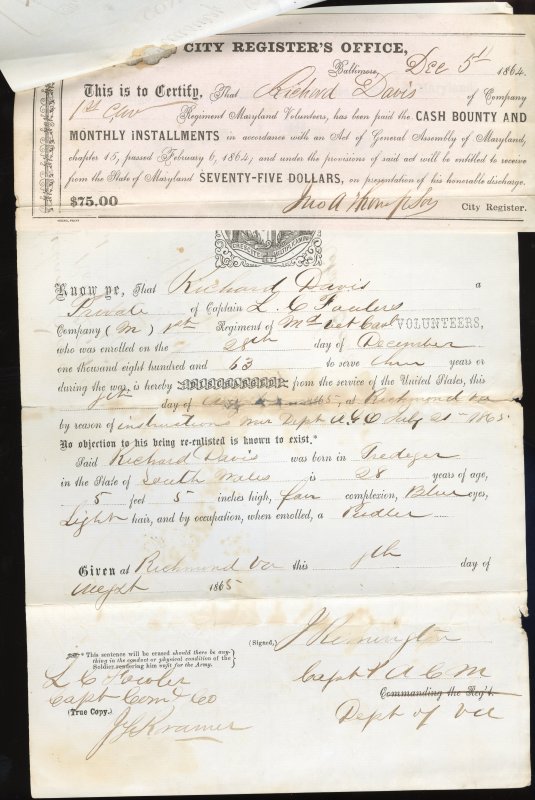 CITY REGISTER'S OFFICE,
Baltimore, Dec 5th 1864.
This is to Certify, That Richard Davis of Company
1st Cav Regiment Maryland Volunteers, has been paid the CASH BOUNTY AND
MONTHLY INSTALLMENTS in accordance with an Act of General Assembly of Maryland,
chapter 15, passed February 6, 1864; and under the provisions of said act will be entitled to receive
from the State of Maryland SEVENTY-FIVE DOLLARS, on presentation of his honorable discharge.
$75.00 Jno A Thompson City Register.
Know ye, That Richard Davis a
Private of Captain L. C. Fowlers
Company (M) 1st Regiment of Md Vet Cav VOLUNTEERS,
who was enrolled on the 28th day of December
one thousand eight hundred and 63 to serve three years or
during the war, is hereby from the service of the United States, this
8th day of 1865, at Richmond Va
by reason of instructions War Dept A.G.O July 21st 1865
No objection to his being re-enlisted is known to exist.*
Said Richard Davis was born in Tredeger
in the State of South Wales is 28 years of age,
5 feet 5 inches high, fair complexion, Blue eyes,
Light hair, and by occupation, when enrolled, a
Given at Richmond Va this 8th day of
1865
* This sentence will be erased should there be any-
thing in the conduct or physical condition of the
Soldier rendering him unfit for the Army.
(Signed,) J Remington
Capt & A C M
Commanding the Reg't.
Dept of Va
L C Fowler
Capt Com'g Co
(True Copy.)
J G Kramer